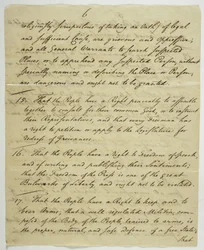 6
without
and sufficient Cause, are grievous and oppressive;
and all General Warrants to search suspected
Places, or to apprehend any suspected Person, without
specially naming or describing the Place or Person,
are dangerous and ought not to be granted.
15. That the People have a right peaceably to assemble
together to consult for their common Good, or to instruct
their Representatives, and that every Freeman has
a right to petition or apply to the Legislature for
redress of Grievances.
16. That the People have a right to freedom of speech,
and of writing and publishing their sentiments;
that the freedom of the Press is one of the great
Bulwarks of Liberty and ought not to be violated.
17. That the People have a Right to keep and to
bear Arms; that a well regulated Militia, com-
posed of the Body of the People, trained to arms, is
the proper, natural, and safe defence of a free State;
that